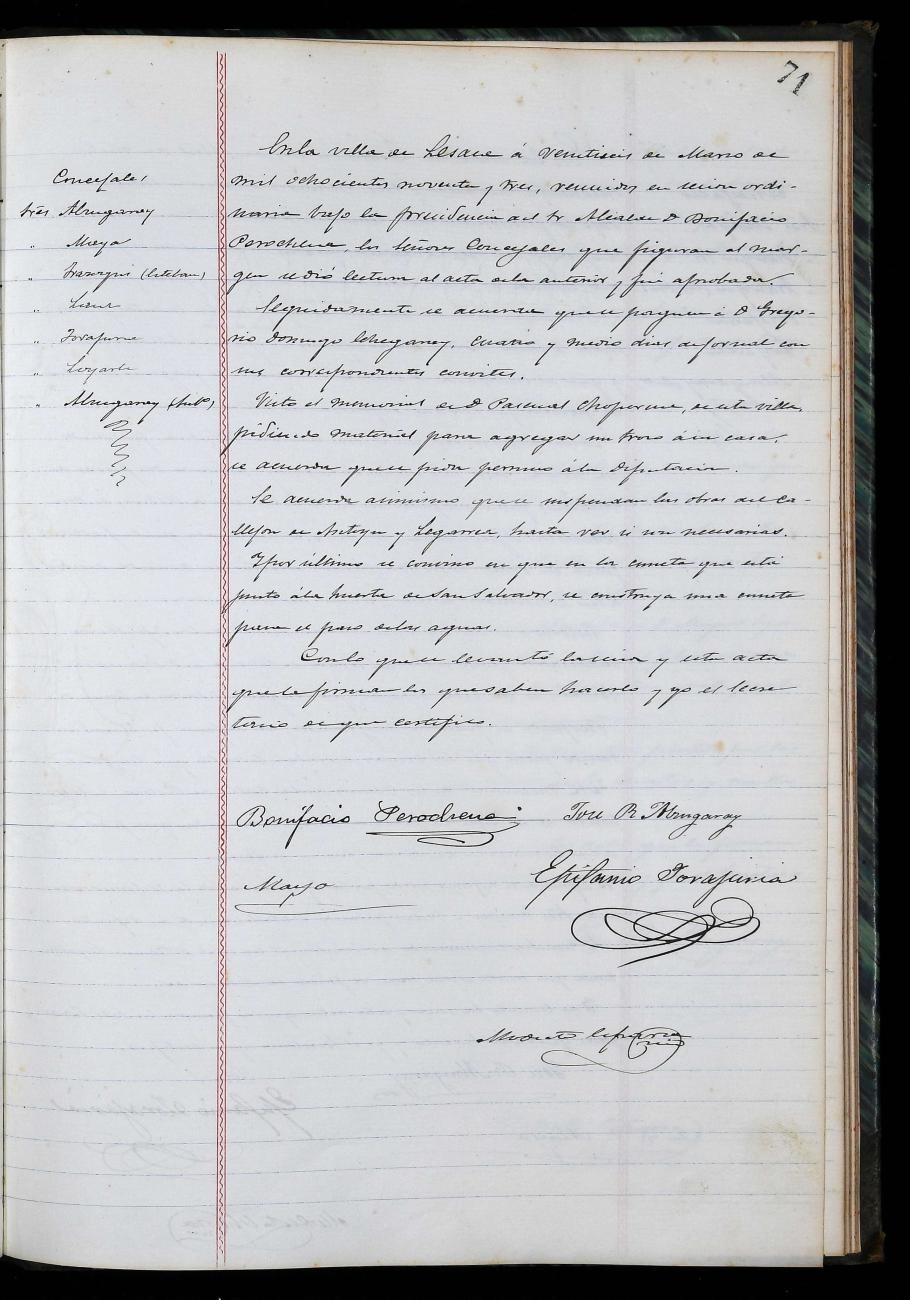 71
Concejales
Sres Almugaray
" Maya
" Irazoqui (Esteban)
"
" Torajuria
" Loyarte
" Almugaray
En la villa de Lesaca á veintiseis de Marzo de
mil ochocientos noventa y tres, reunidos en sesion ordi-
naria bajo la presidencia del Sr Alcalde D Bonifacio
Perochena, los Señores Concejales que figuran al mar-
gen se dió lectura al acta de la anterior y fué aprobada.
Seguidamente se acuerda que se paguen á D Grego-
rio Domingo Echegaray, cuatro y medio dias de jornal con
sus correspondientes convites.
Visto el memorial de D Pascual Choperena, de esta villa,
pidiendo material para agregar un trozo á su casa,
se acuerda que se pida permiso á la Diputacion.
Se acuerda asimismo que se suspendan las obras del ca-
llejon de y Legarrea, hasta ver si son necesarias.
Y por último se convino en que en la cuneta que está
junto á la huerta de San Salvador, se construya una cuneta
para el paso de las aguas.
Con lo que se levantó la sesion y esta acta
que la firman los que saben hacerlo y yo el Secre
tario de que certifico.
Bonifacio Perochena José R Almugaray
Maya Epifanio Torajuria
Modesto